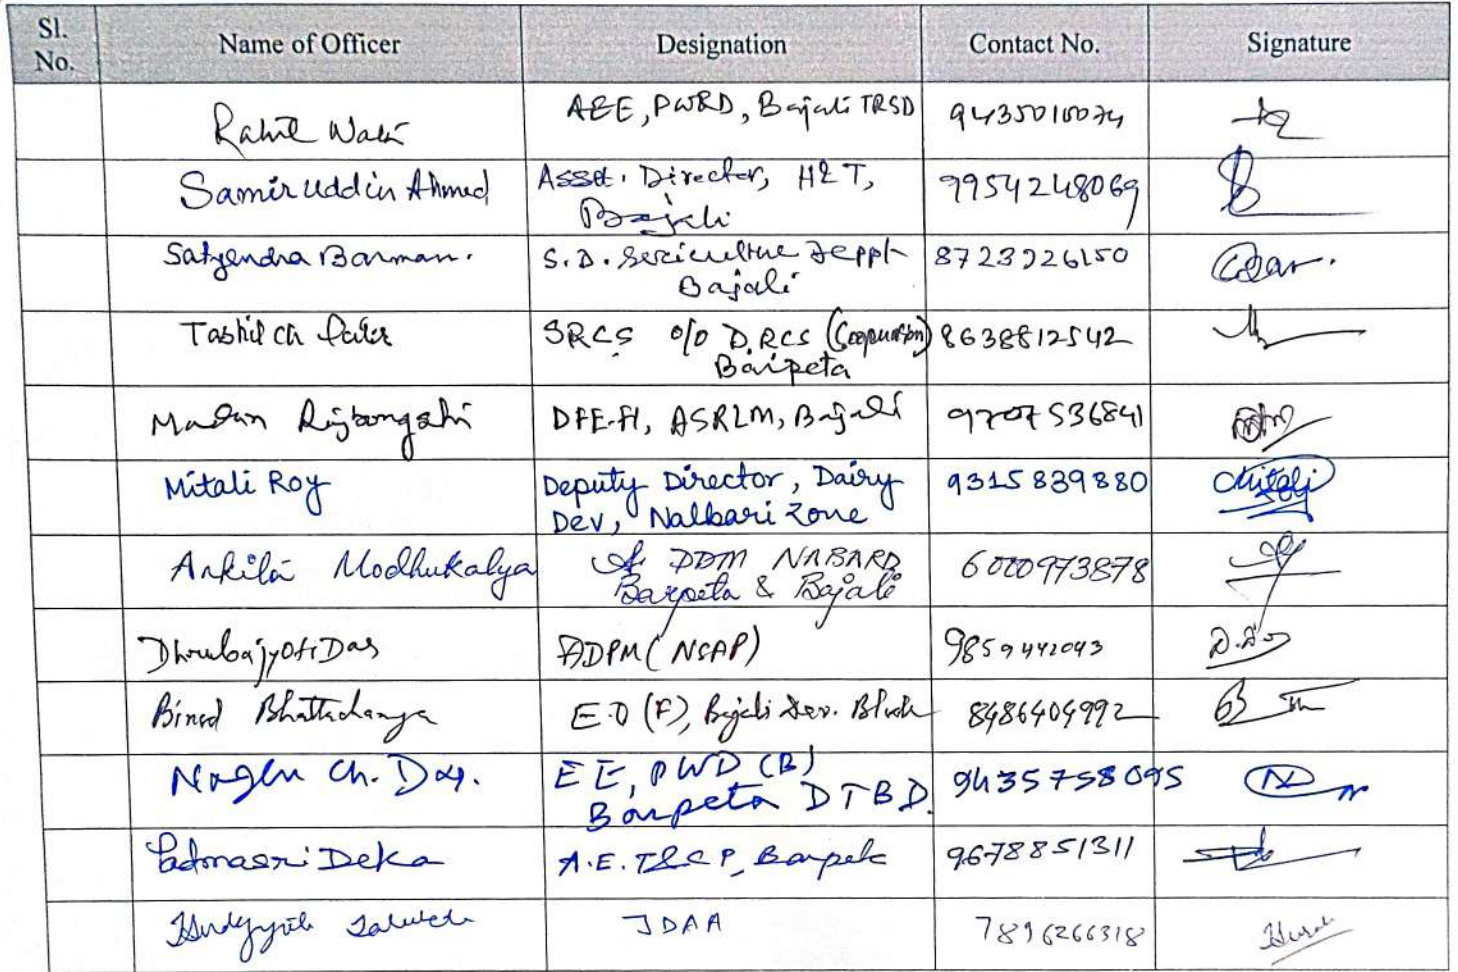 Sl. No. Name of Officer Designation Contact No. Signature
Rahil Wali AEE, PWRD, Bajali TRSD 9435010074
Samir Uddin Ahmed Asstt. Director, H&T, Bajali 9954248069
Satyendra Barman. S.D. Sericulture Deppt Bajali 8723926150
Tashil Ch SRCS o/o D.RCS (Cooperation) Barpeta 8638812542
Madan Rajbongshi DFE-FI, ASRLM, Bajali 9707536841
Mitali Roy Deputy Director, Dairy Dev, Nalbari Zone 9315839880 Mitali Roy
Ankita Modhukalya DDM NABARD Barpeta & Bajali 6000973878
Dhrubajyoti Das ADPM (NSAP) 9859442043
Binod Bhattacharya E.O (F), Bajali Dev. Block 8486404992
Nagen Ch. Das. EE, PWD (B) Barpeta DTBD. 9435758095
Padmasri Deka A.E. T&CP, Barpeta 9678851311
JDAA 7896266318